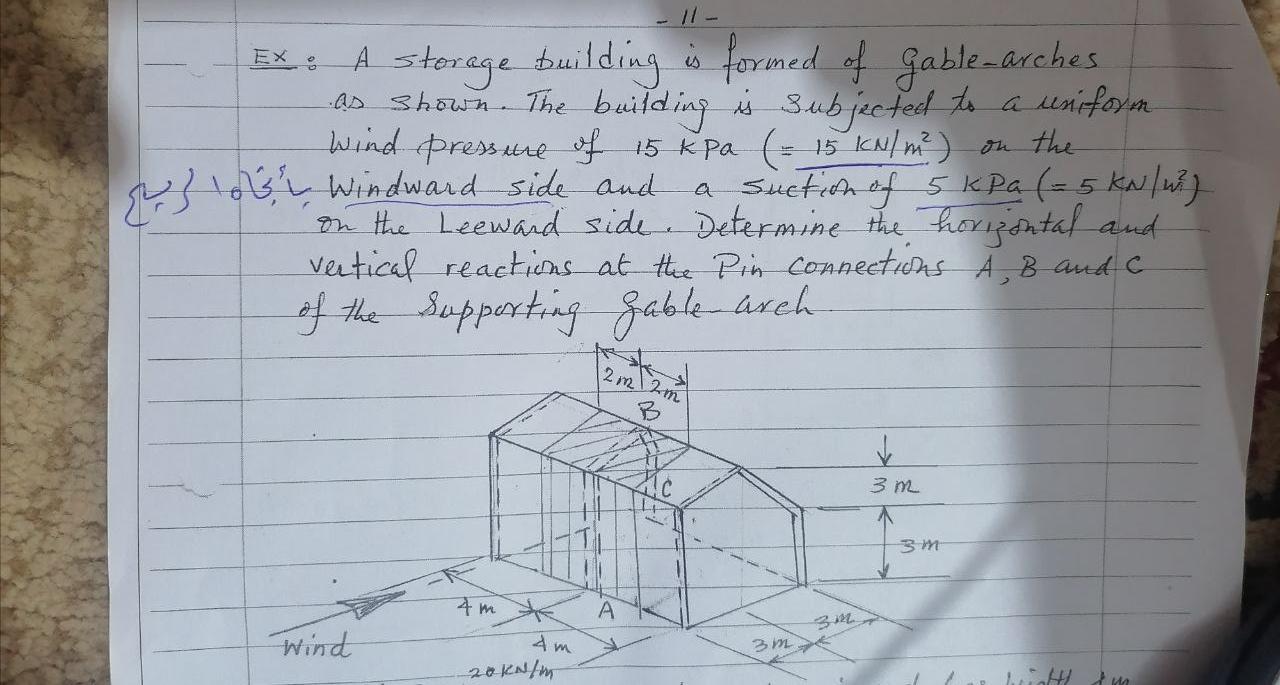 - 11 -
Ex: A storage building is formed of gable-arches
as shown. The building is subjected to a uniform
Wind pressure of 15 kPa (= 15 KN/m²) on the
Windward side and a suction of 5 kPa (= 5 KN/m²)
on the Leeward side. Determine the horizontal and
vertical reactions at the Pin connections A, B and C
of the Supporting gable-arch
2m
2m
B
C
3 m
3 m
A
4 m
4 m
3m
3m
Wind
20 KN/m